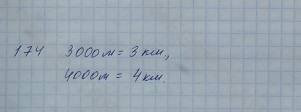 174 3000м = 3 км,
4000м = 4 км.